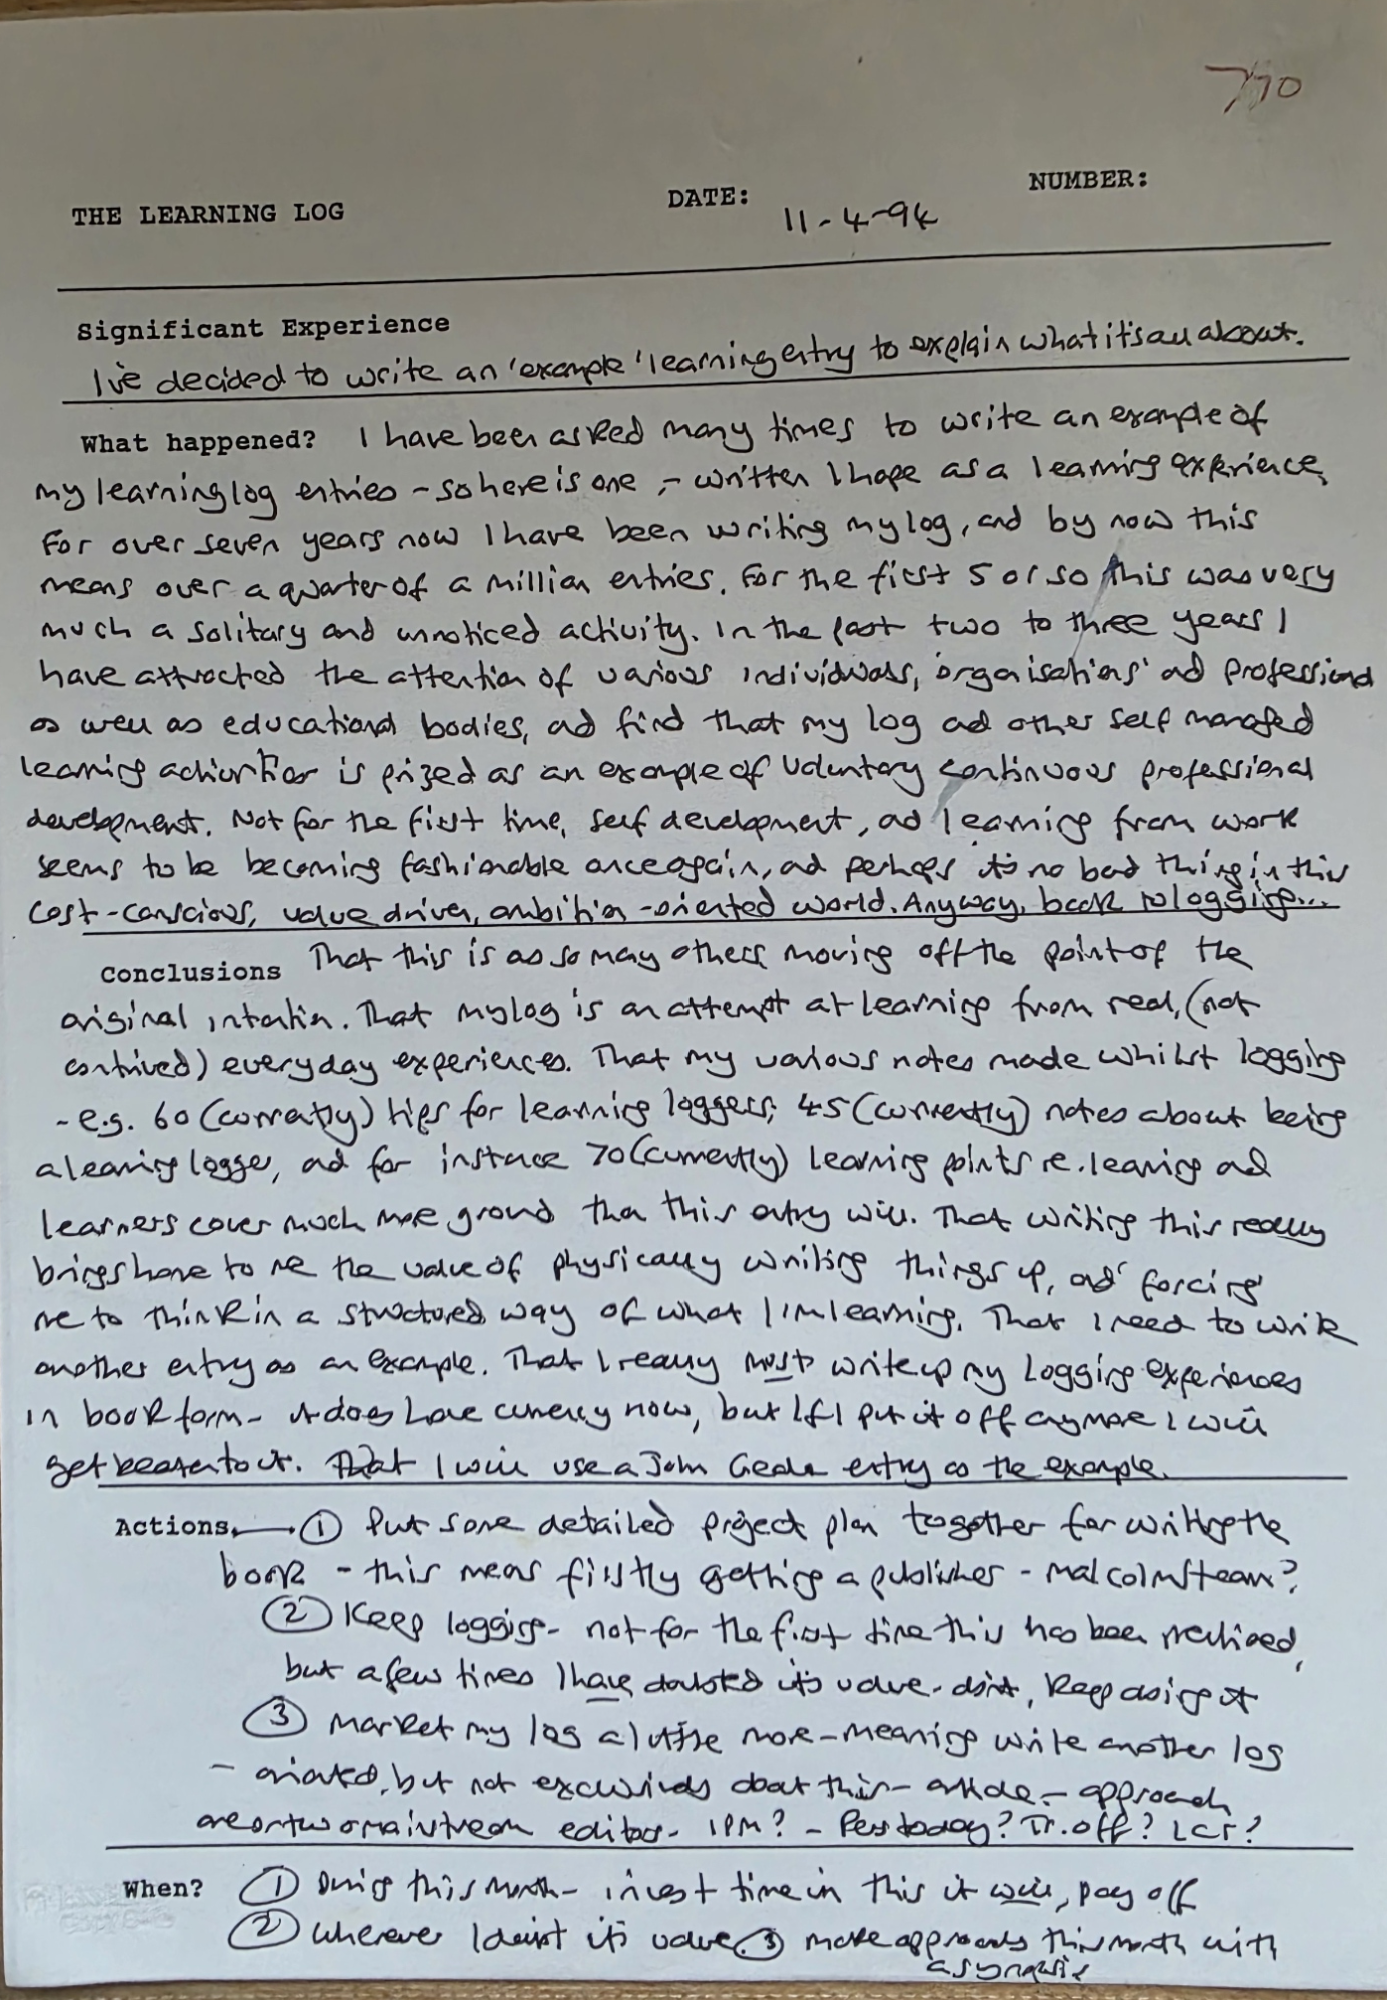 770
THE LEARNING LOG DATE: 11-4-94 NUMBER:
Significant Experience
I've decided to write an 'example' learning entry to explain what it's all about.
What happened? I have been asked many times to write an example of
my learning log entries - so here is one, - written I hope as a learning experience,
For over seven years now I have been writing my log, and by now this
means over a quarter of a million entries. For the first 5 or so this was very
much a solitary and unnoticed activity. In the past two to three years I
have attracted the attention of various individuals, 'organisations' and professional
as well as educational bodies, and find that my log and other self managed
learning activities is prized as an example of voluntary continuous professional
development. Not for the first time, self development, and learning from work
seems to be becoming fashionable once again, and perhaps its no bad thing in this
cost-conscious, value driven, ambition-oriented world. Anyway, back to logging...
Conclusions That this is as so many others moving off the point of the
original intention. That my log is an attempt at learning from real, (not
contrived) everyday experiences. That my various notes made whilst logging
- e.g. 60 (currently) tips for learning loggers; 45 (currently) notes about being
a learning logger, and for instance 70 (currently) learning points re. learning and
learners cover much more ground than this entry will. That writing this really
brings home to me the value of physically writing things up, and 'forcing'
me to think in a structured way of what I'm learning. That I need to write
another entry as an example. That I really must write up my logging experiences
in book form - it does have currency now, but if I put it off anymore I will
get beaten to it. That I will use a John entry as the example.
Actions. ① Put some detailed project plan together for writing the
book - this means firstly getting a publisher - Malcolm's team?
② Keep logging - not for the first time this has been mentioned,
but a few times I have doubted its value - don't, keep doing it
③ Market my log a little more - meaning write another log
- oriented, but not exclusively about this - article - approach
one or two mainstream editors - IPM? - Pers today? Tr. off? LCT?
When? ① During this month - invest time in this it will, pay off
② Whenever I doubt its value ③ make approaches this month with
a synopsis